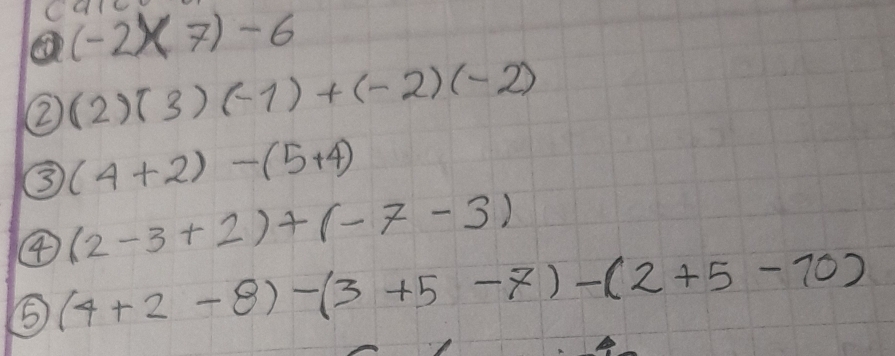 ① (-2)(7) - 6
② (2)(3)(-1) + (-2)(-2)
③ (4+2) - (5+4)
④ (2-3+2) + (-7-3)
⑤ (4+2-8) - (3+5-7) - (2+5-10)